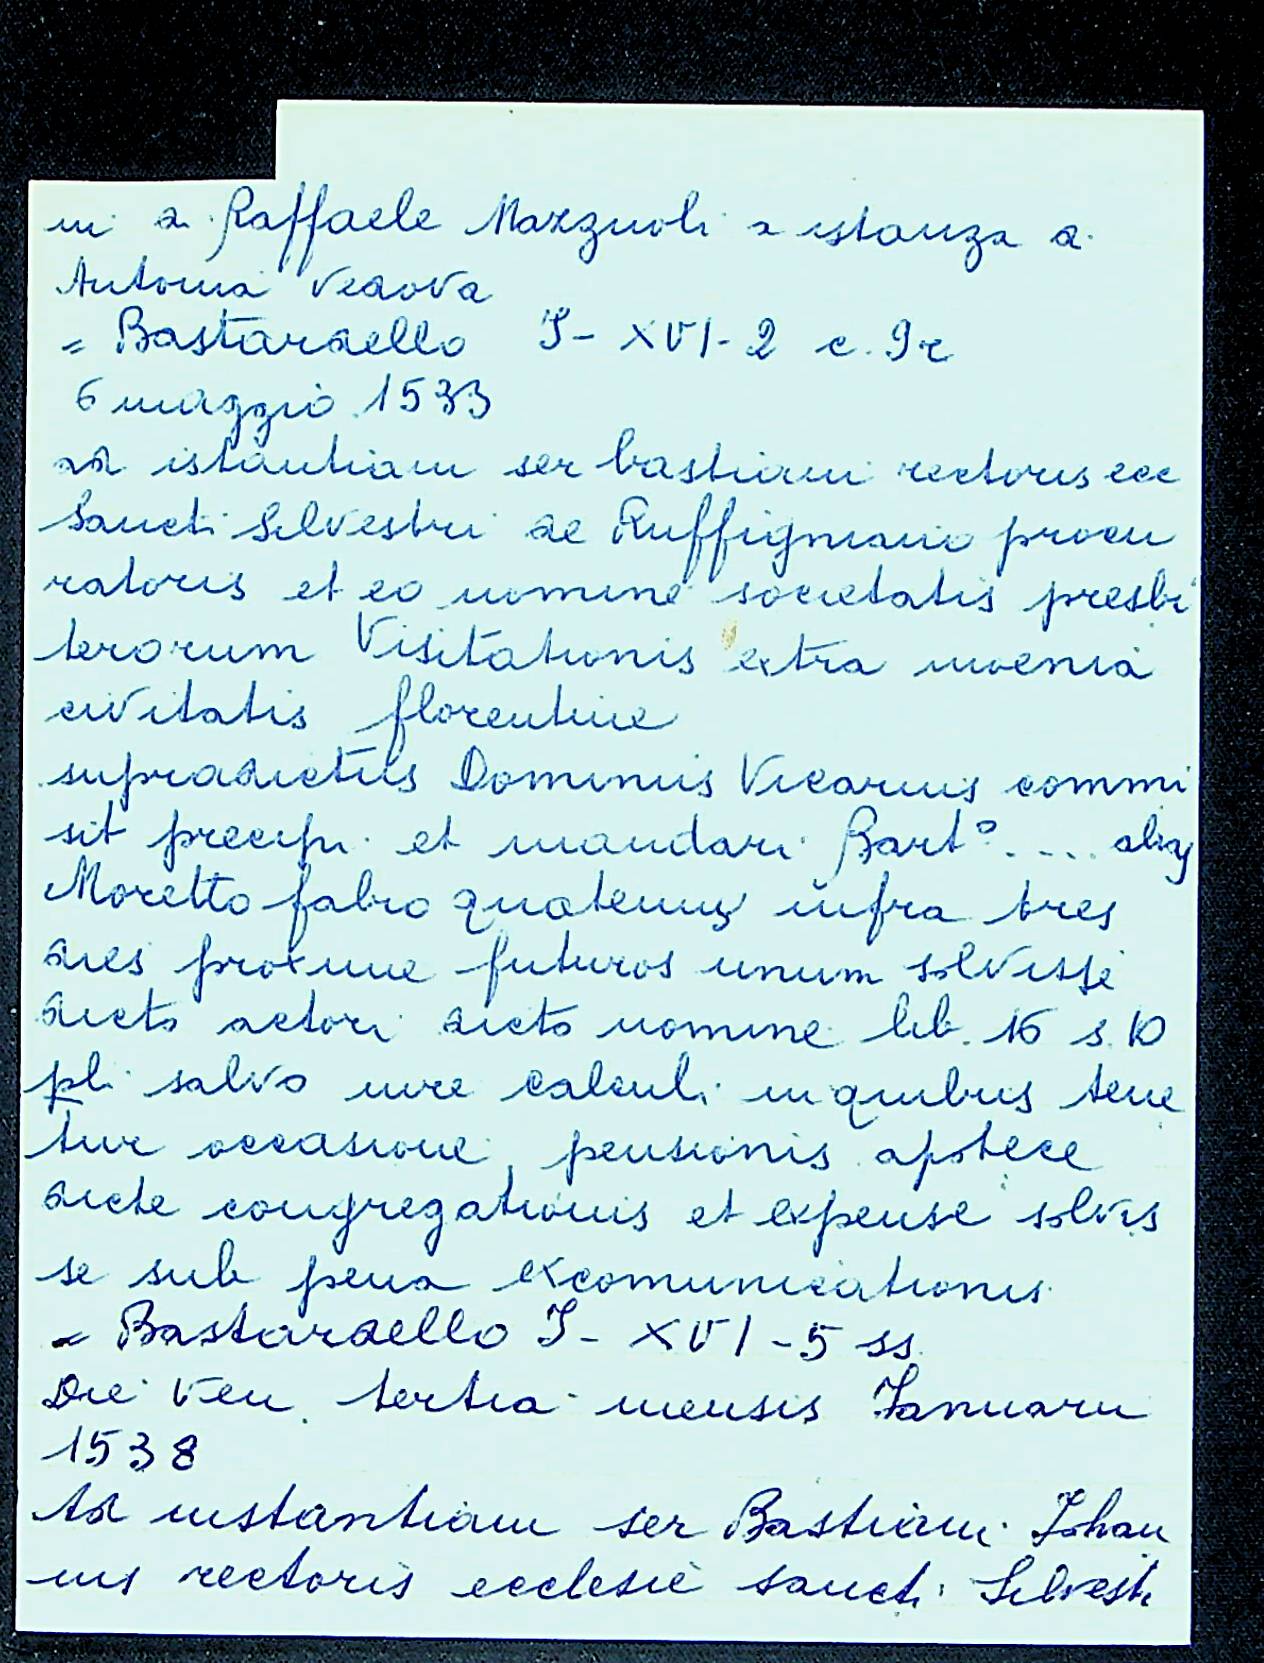 ni di Raffaele Mazzuoli a istanza di
Antonia vedova
= Bastardello I- XVI- 2 c. 9r
6 maggio 1533
ad istantiam ser bastiani rectoris ecc
Sancti Silvestri de Ruffignano procu
ratoris et eo nomine societatis presbi
terorum Visitationis extra moenia
civitatis florentine
supradictus Dominus Vicarius commi
sit precipi et mandari Bart° .... alias
Moretto fabro quatenus infra tres
dies proxime futuros unum solvisse
dicto actori dicto nomine lib. 16 s. 10
pli salvo iure calculi in quibus tene
tur occasione pensionis apotece
dicte congregationis et expense solvis
se sub pena excomunicationis
= Bastardello I- XVI -5 ss
Die Ven. tertia mensis Ianuarii
1538
Ad instantiam ser Bastiani Johan
nis rectoris ecclesie sancti Silvestri